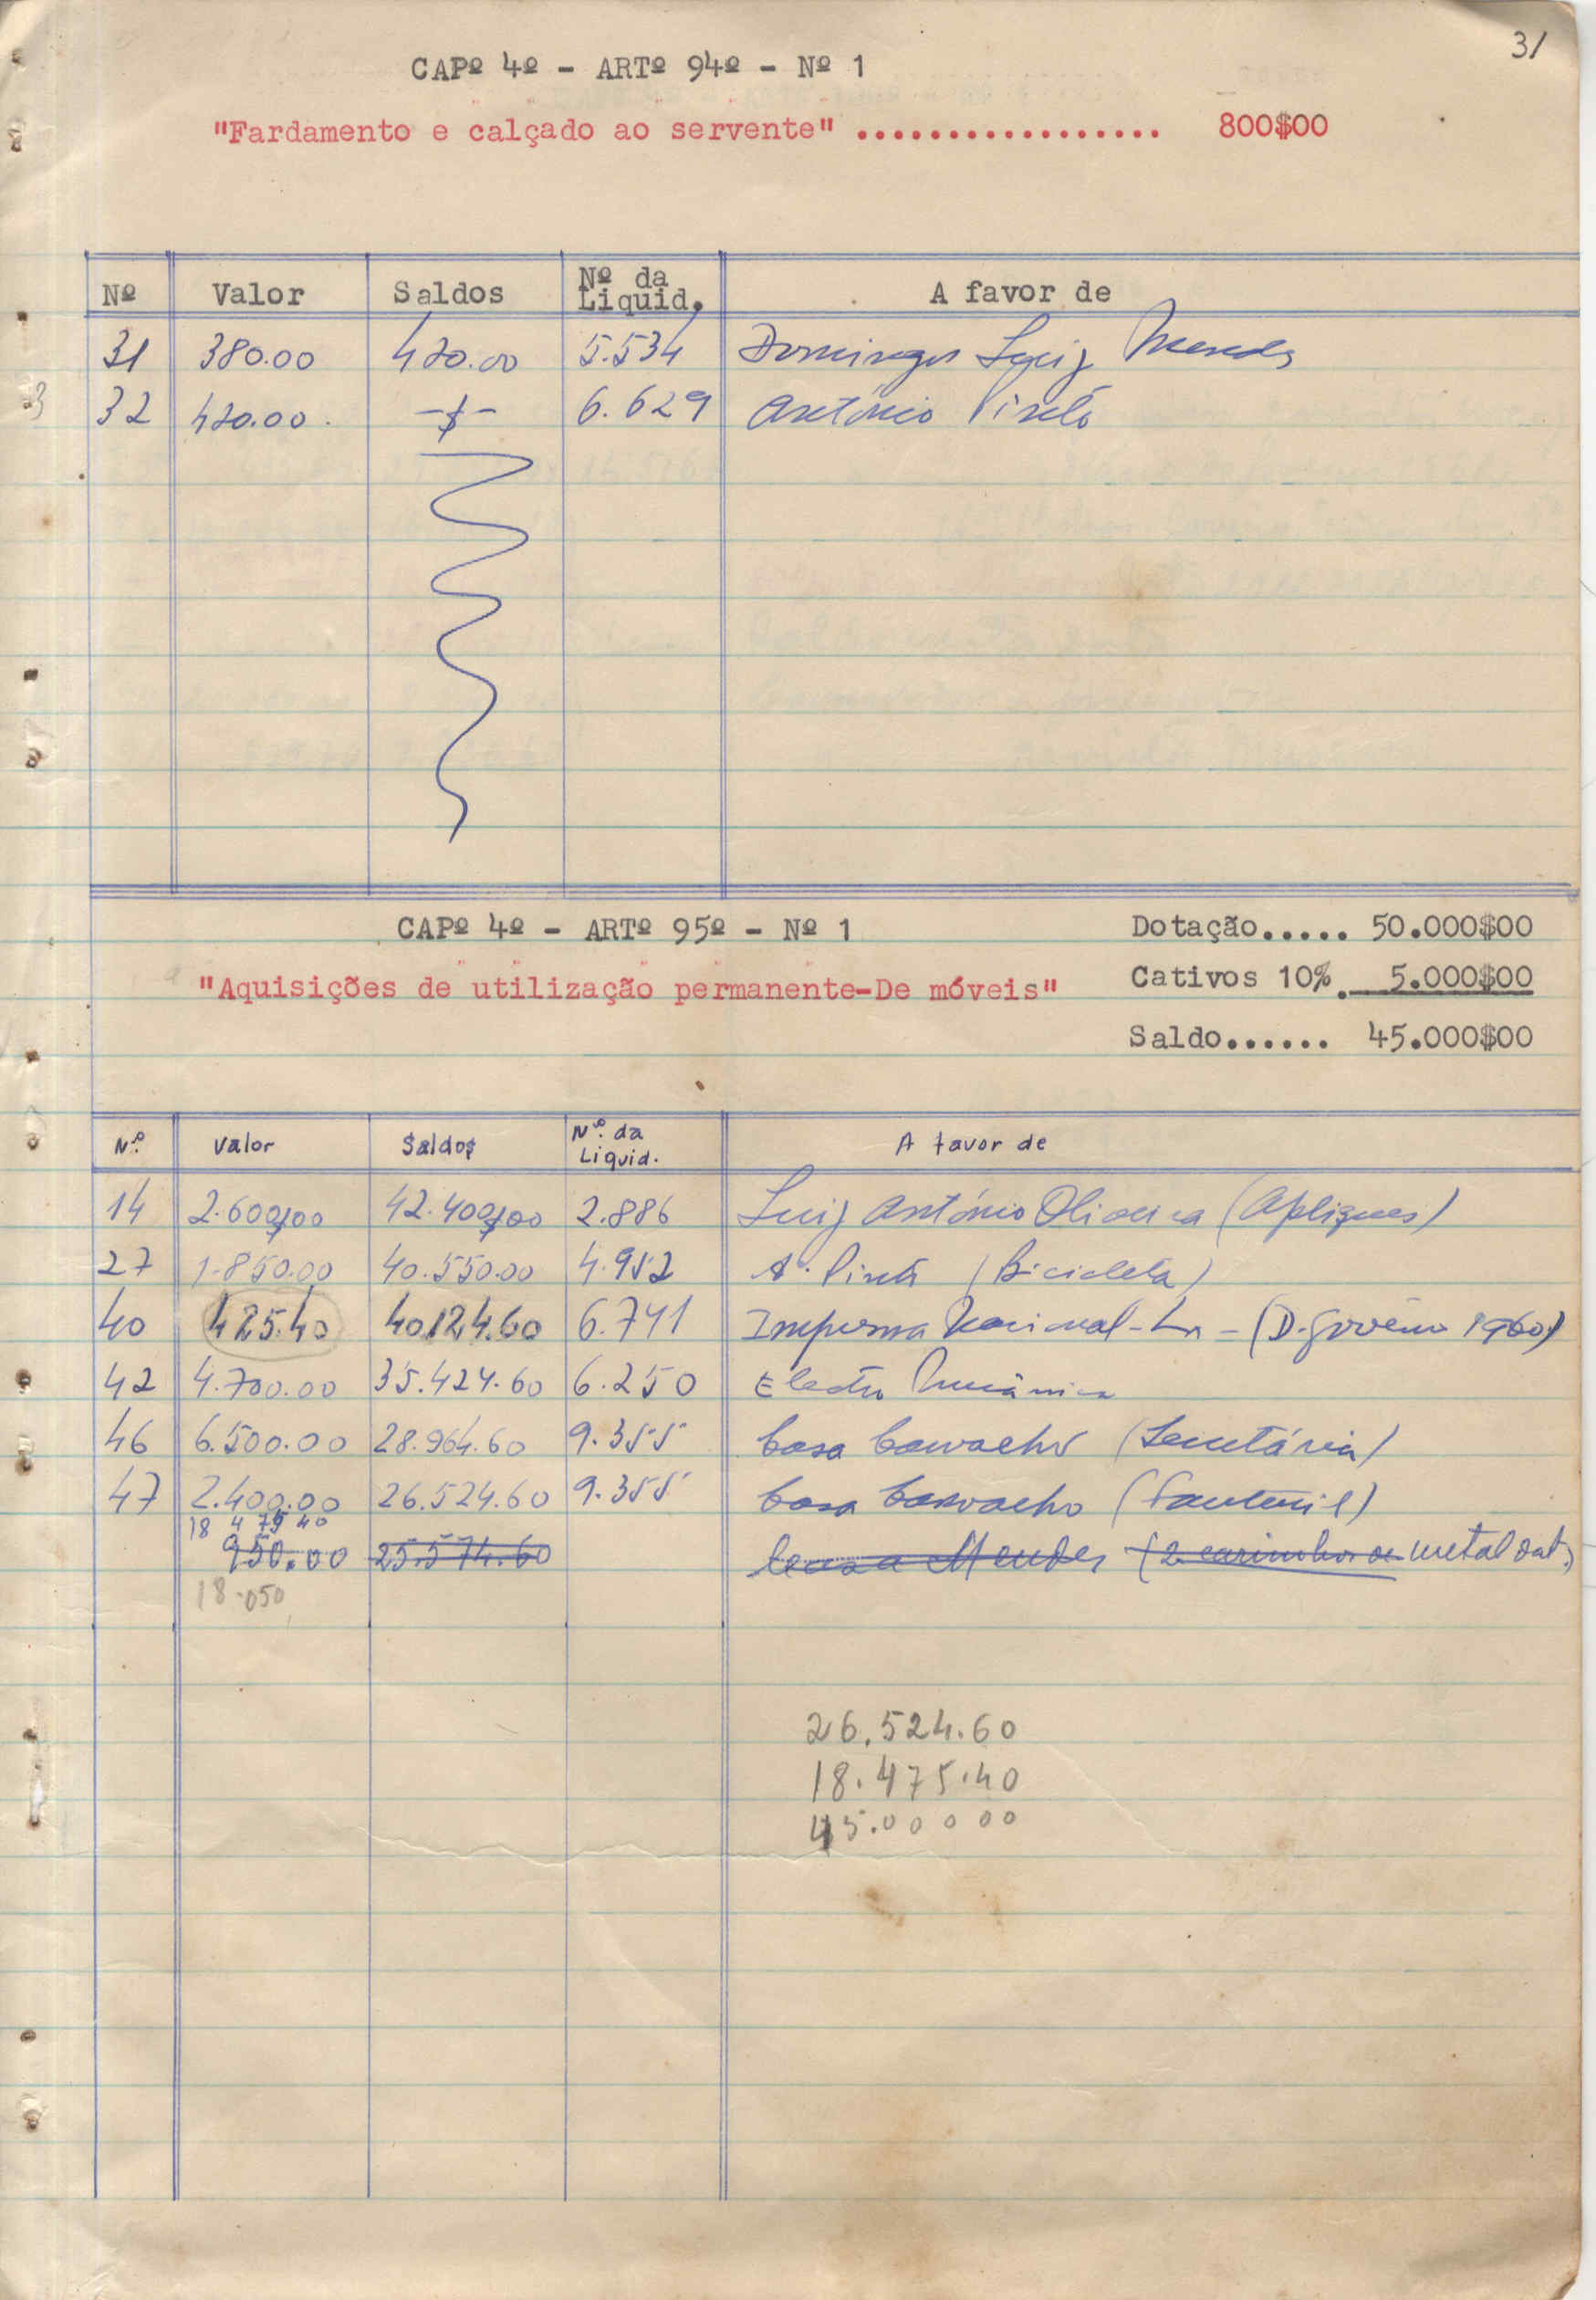 31
CAPº 4º - ARTº 94º - Nº 1
"Fardamento e calçado ao servente" ................. 800$00
Nº Valor Saldos Nº da Liquid. A favor de
31 380.00 420.00 5.534 Domingos Luiz Mendes
32 420.00 -$- 6.629 António Pinto
CAPº 4º - ARTº 95º - Nº 1 Dotação..... 50.000$00
"Aquisições de utilização permanente-De móveis" Cativos 10%. 5.000$00
Saldo...... 45.000$00
Nº. Valor Saldos Nº. da Liquid. A favor de
14 2.600$00 42.400$00 2.886 Luiz António Oliveira (Apliques)
27 1.850.00 40.550.00 4.952 A. Pinto (Bicicleta)
40 425.40 40.124.60 6.741 Imprensa Nacional - (D. Govêrno 1960)
42 4.700.00 35.424.60 6.250 Electro Mecânica
46 6.500.00 28.964.60 9.355 Casa Carvalho (Secretária)
47 2.400.00 26.524.60 9.355 Casa Carvalho (Fauteuil)
18 475 40
950.00 25.574.60 Casa Mendes (2 carimbos de metal dat.)
18.050
26.524.60
18.475.40
45.000 00